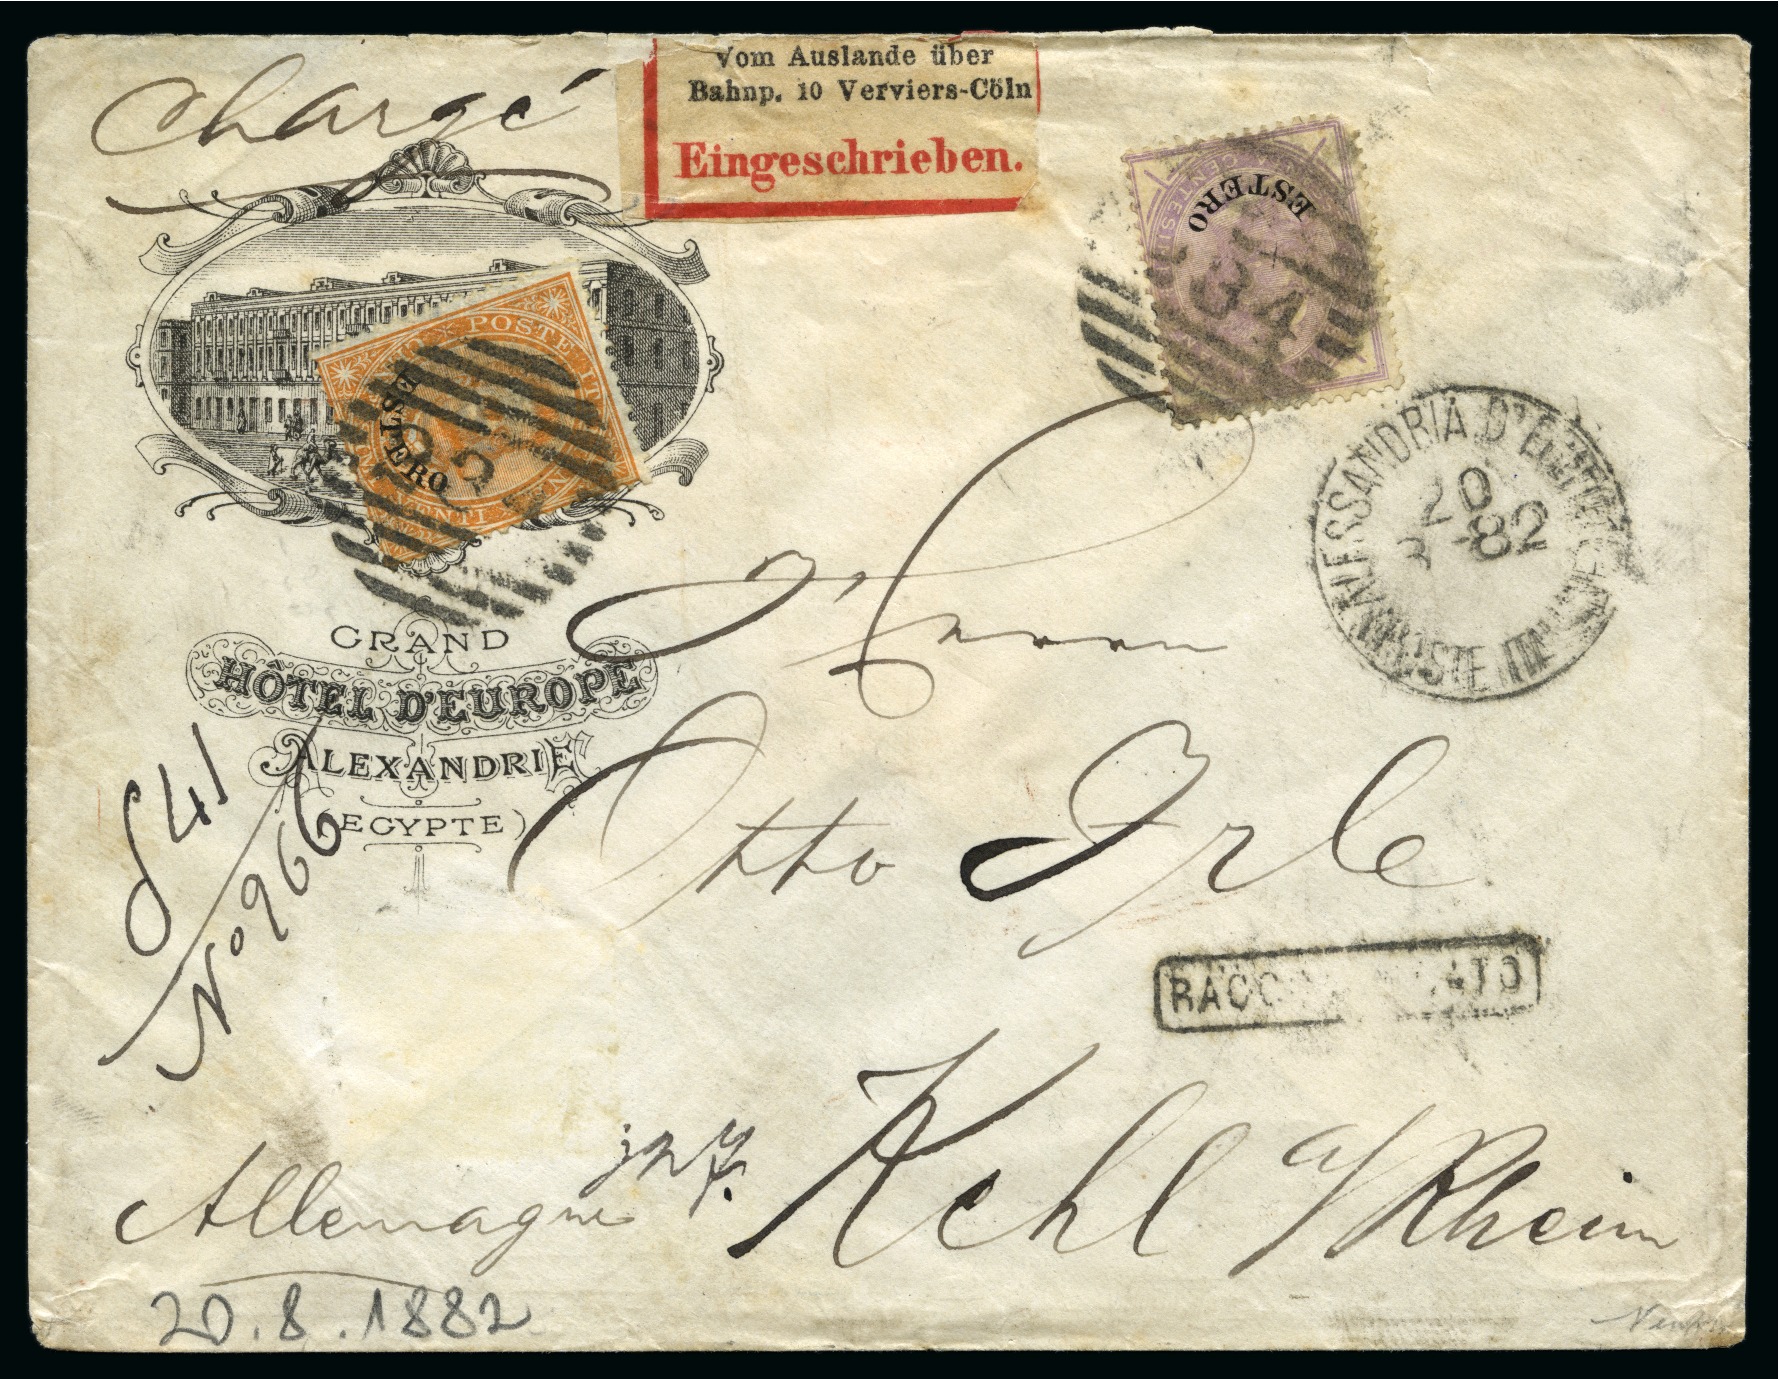 Chargé
Vom Auslande über
Bahnp. 10 Verviers-Cöln
Eingeschrieben.
ESTERO
234
POSTE
ESTERO
ALESSANDRIA D'EGITTO
20
8 -82
POSTE ITAL
GRAND
HÔTEL D'EUROPE
ALEXANDRIE
(EGYPTE)
Herrn
Otto Irle
41
No 966
RACCOMANDATO
Kehl a/Rhein
Allemagne
20.8.1882